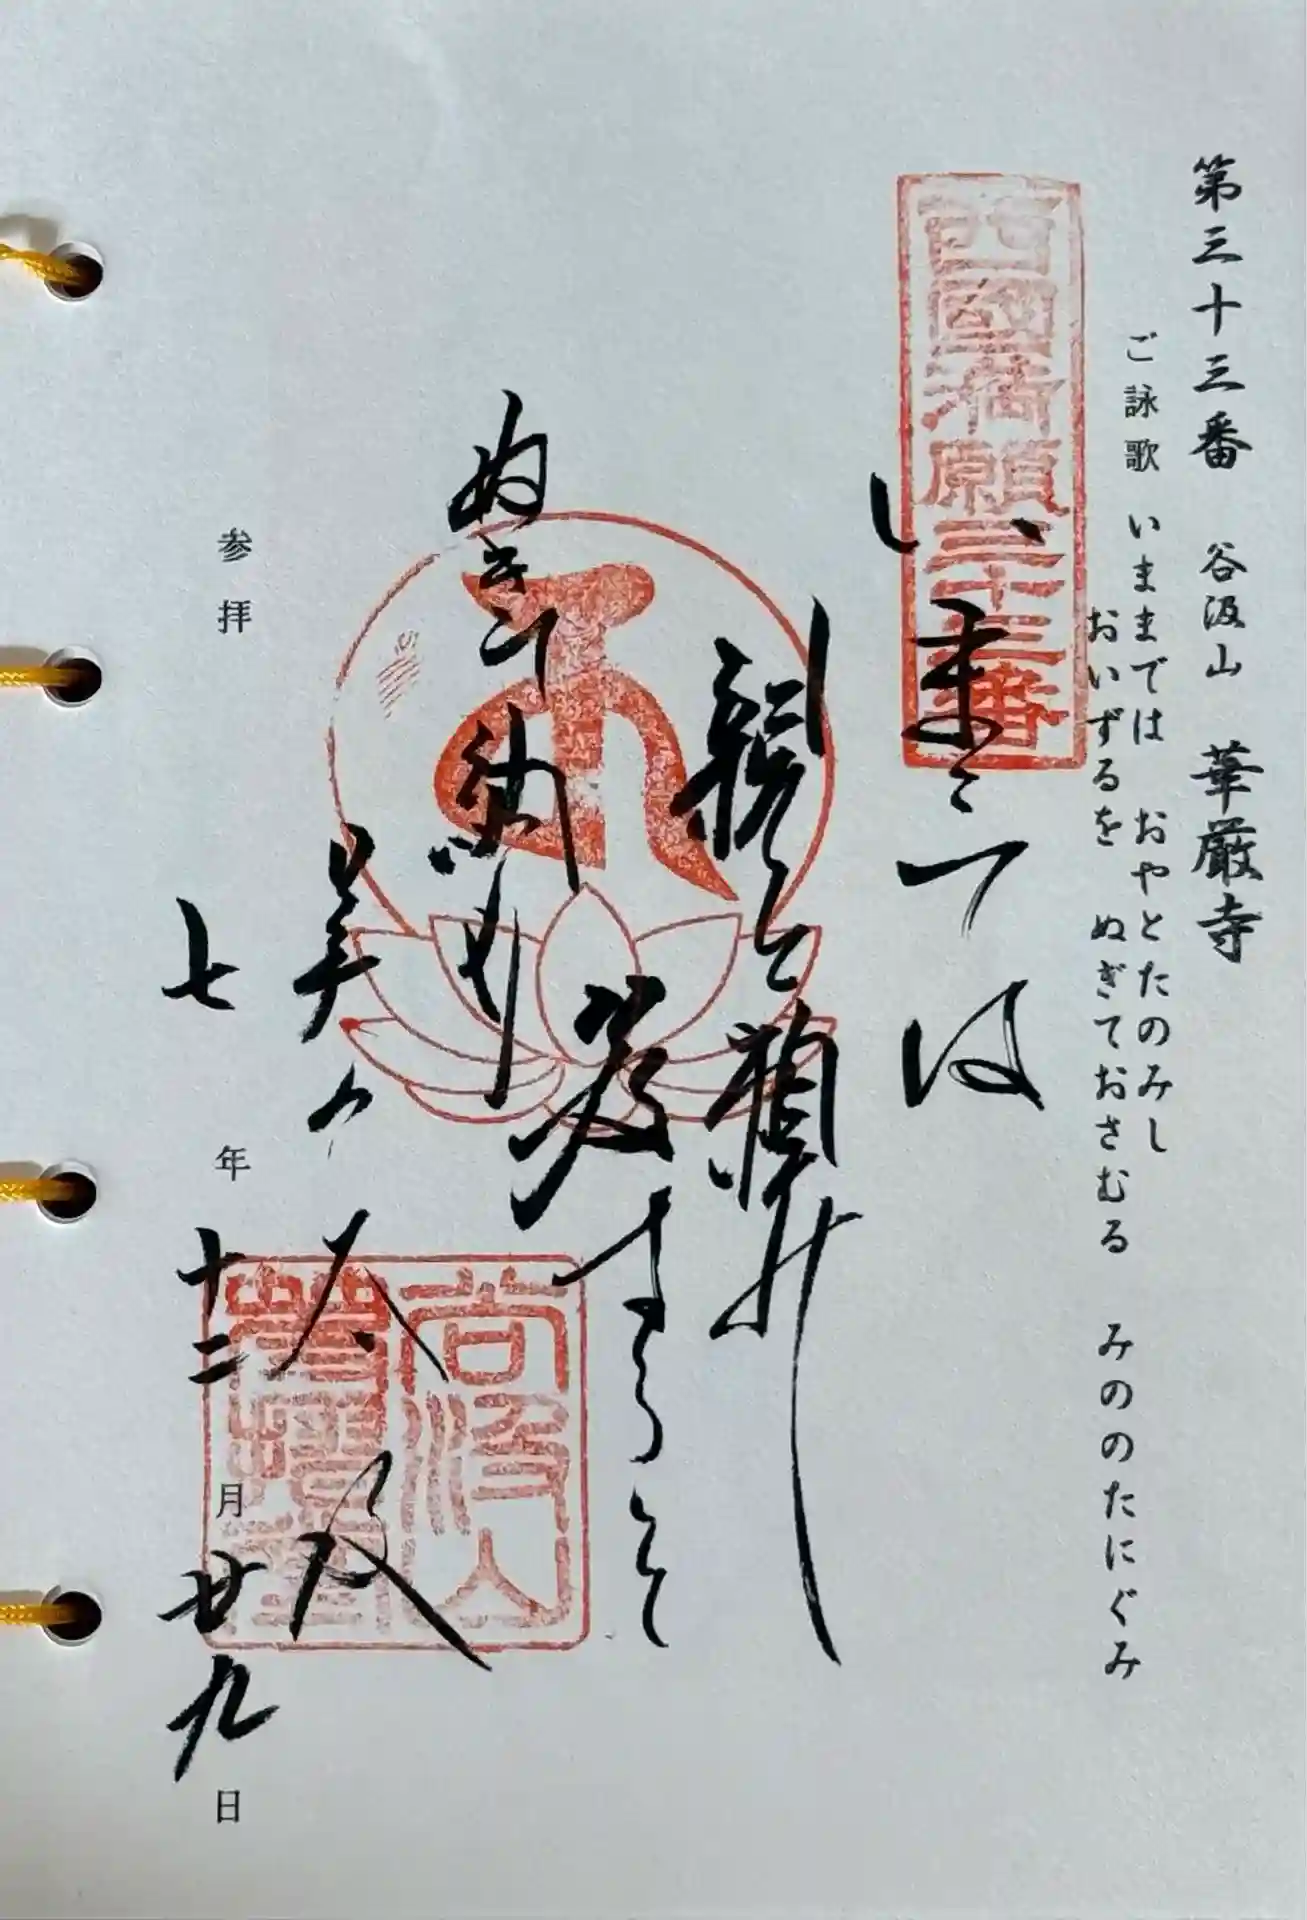 第三十三番 谷汲山 華厳寺
ご詠歌 いままでは おやとたのみし
おいずるを ぬぎておさむる みののたにぐみ
西國満願三十三番
い末ゝては
親と頼み
笈するを
ぬき天納む
美の
谷汲
谷汲山
参拝 七年 十二月 廿九日